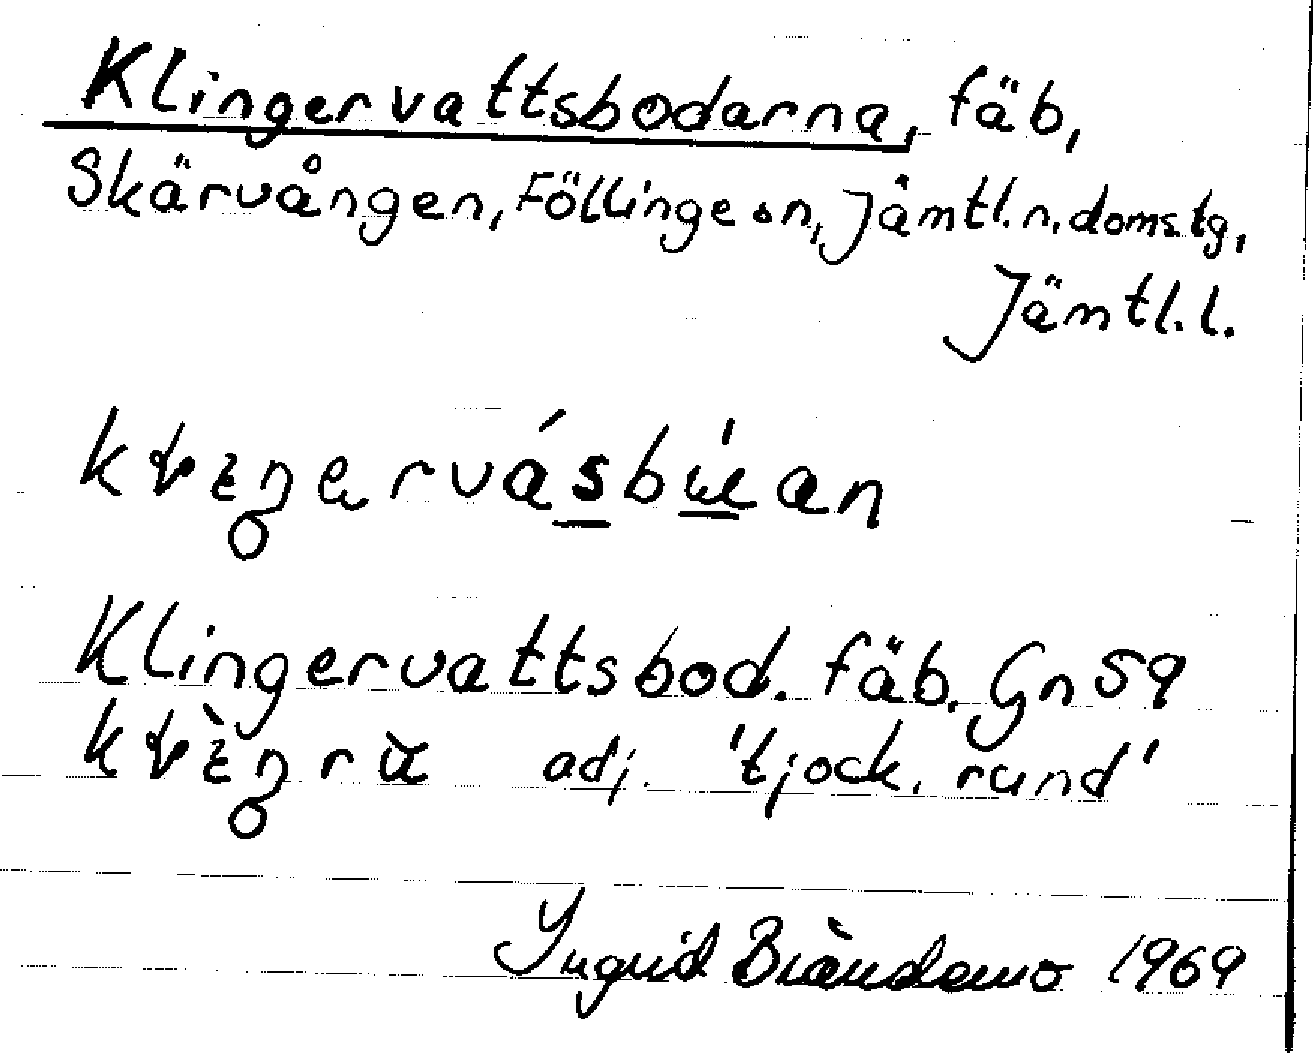 Klingervattsbodarna, fäb,
Skärvången, Föllinge sn, Jämtl. n. domstg,
Jämtl. l.
Klingervattsbod. fäb. Gn 59
adj. 'tjock, rund'
Ingrid Brändemo 1969